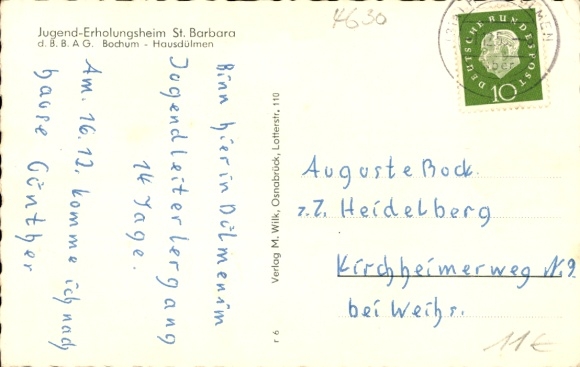 4630
Jugend-Erholungsheim St. Barbara
d. B. B. A G. Bochum - Hausdülmen
Binn hier in Dülmen im
Jugendleiterlergang
14 Tage.
Am. 16.12. komme ich nach
hause Günther
Verlag M. Wilk, Osnabrück, Lotterstr. 110
r 6
DEUTSCHE BUNDESPOST
10
Auguste Bock.
z.Z. Heidelberg
Kirchheimerweg N. 9
bei Weihs.
11€